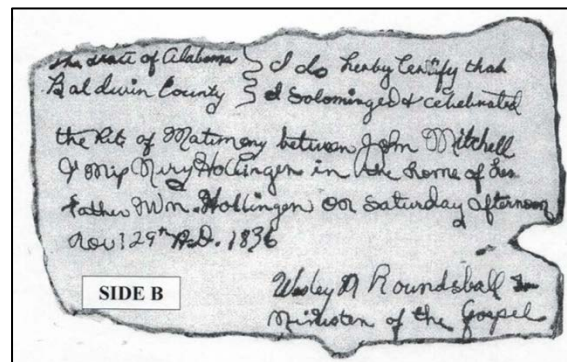 The State of Alabama } I do herby Certify that
Baldwin County } I Solominged & celebrated
the Rite of Matimony between John Mitchell
& Miss Mery Hollingen in the home of her
father Wm. Hollingen on Saturday afternoon
Nov 129th A.D. 1836
SIDE B
Wesley Roundsball
Minister of the Gospel